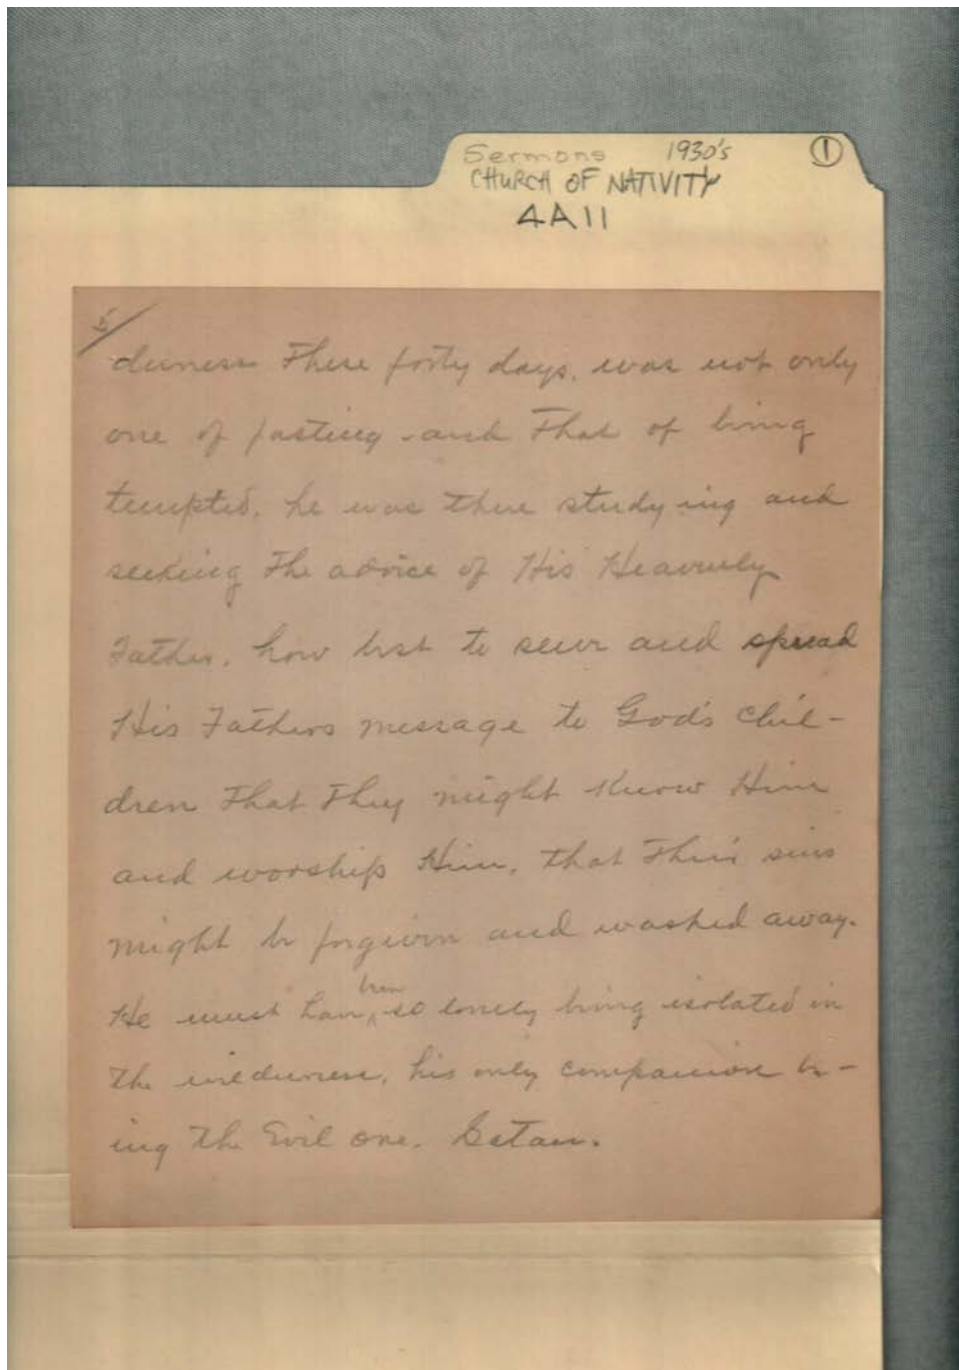 Sermons 1930's ①
CHURCH OF NATIVITY
4A11
5/
derness These forty days, was not only
one of fasting and That of being
tempted. he was there studying and
seeking The advice of His Heavenly
Father, how best to serve and spread
His Fathers message to God's chil-
dren That They might Know Him
and worship Him, that Their sins
might be forgiven and washed away.
been
He must have so lonely being isolated in
the wilderness, his only companion be-
ing the Evil one. Satan.